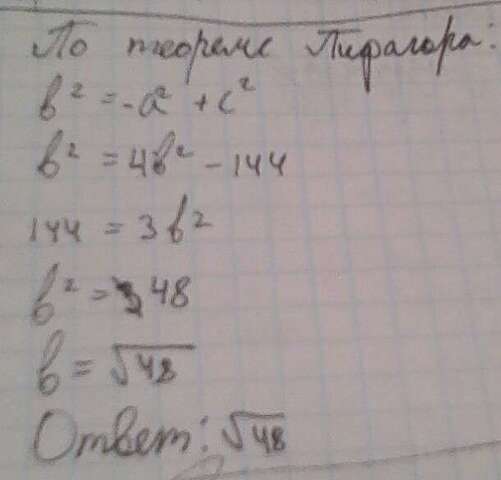 По теореме Пифагора:
b² = -a² + c²
b² = 4b² - 144
144 = 3b²
b² = 48
b = √48
Ответ: √48